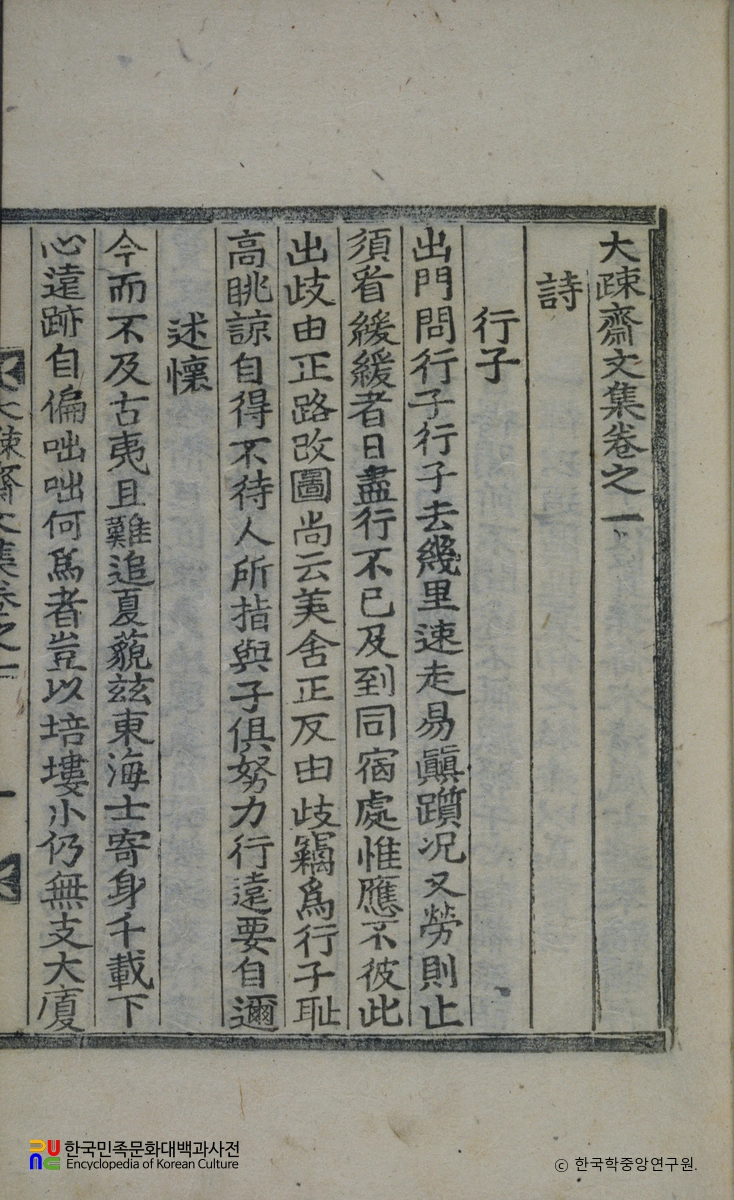 大疎齋文集卷之一
詩
行子
出門問行子行子去幾里速走易顚躓况又勞則止
須看緩緩者日盡行不已及到同宿處惟應不彼此
出歧由正路改圖尚云美舍正反由歧竊爲行子耻
高眺諒自得不待人所指與子俱努力行遠要自邇
述懷
今而不及古夷且難追夏藐玆東海士寄身千載下
心遠跡自偏咄咄何爲者豈以培塿小仍無支大廈
大疎齋文集卷之一
一
한국민족문화대백과사전
Encyclopedia of Korean Culture
ⓒ 한국학중앙연구원.